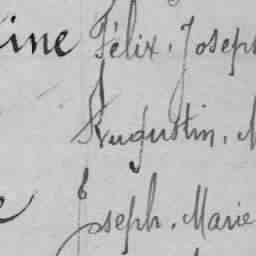 ine Félix, Joseph
Augustin, M
e Joseph, Marie